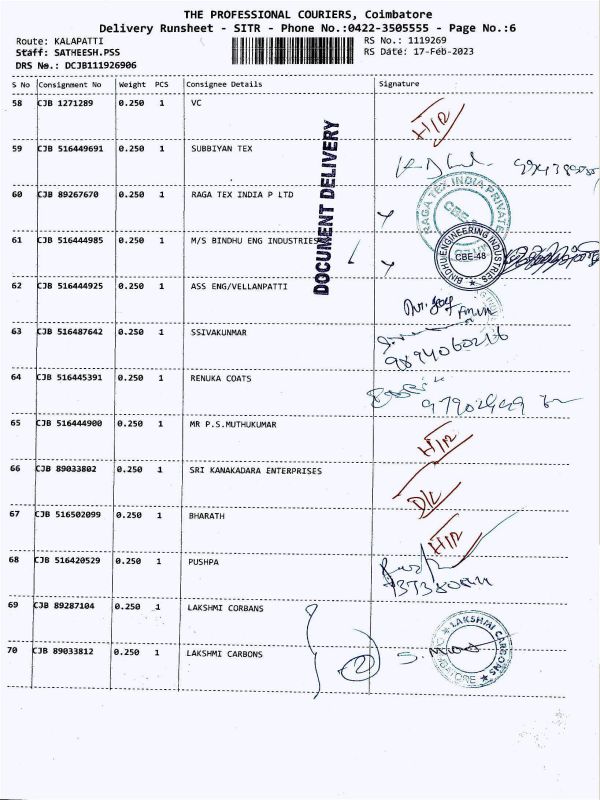 THE PROFESSIONAL COURIERS, Coimbatore
Delivery Runsheet - SITR - Phone No.:0422-3505555 - Page No.:6
Route: KALAPATTI RS No.: 1119269
Staff: SATHEESH.PSS RS Date: 17-Feb-2023
DRS No.: DCJB111926906
S No Consignment No Weight PCS Consignee Details Signature
58 CJB 1271289 0.250 1 VC
59 CJB 516449691 0.250 1 SUBBIYAN TEX
60 CJB 89267670 0.250 1 RAGA TEX INDIA P LTD
RAGA TEX INDIA PRIVATE
61 CJB 516444985 0.250 1 M/S BINDHU ENG INDUSTRIES
BINDHU ENGINEERING INDUSTRIES
CBE-48
DOCUMENT DELIVERY
62 CJB 516444925 0.250 1 ASS ENG/VELLANPATTI
63 CJB 516487642 0.250 1 SSIVAKUNMAR
64 CJB 516445391 0.250 1 RENUKA COATS
65 CJB 516444900 0.250 1 MR P.S.MUTHUKUMAR
66 CJB 89033802 0.250 1 SRI KANAKADARA ENTERPRISES
D/L
67 CJB 516502099 0.250 1 BHARATH
68 CJB 516420529 0.250 1 PUSHPA
69 CJB 89287104 0.250 1 LAKSHMI CORBANS
70 CJB 89033812 0.250 1 LAKSHMI CARBONS
2
LAKSHMI CARBONS